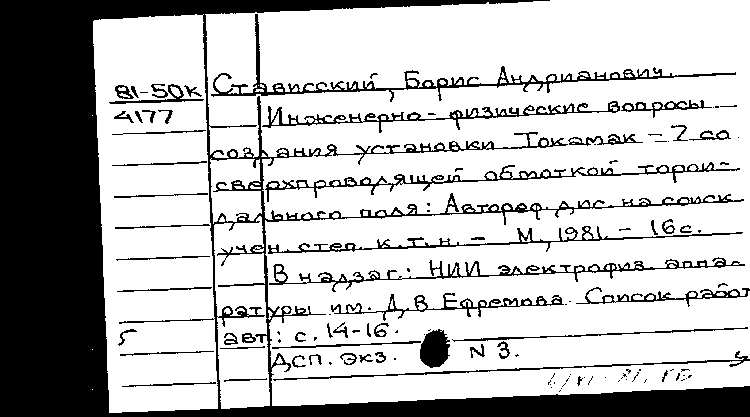 81-50К
4177
Стависский, Борис Андрианович.
Инженерно-физические вопросы
создания установки Токамак-7 со
сверхпроводящей обмоткой торои-
дального поля: Автореф. дис. на соиск.
учен. степ. к.т.н. - М., 1981. - 16с.
В надзаг.: НИИ электрофиз. аппа-
ратуры им. Д.В. Ефремова. Список работ
авт.: с. 14-16.
ДСП. экз. N 3.